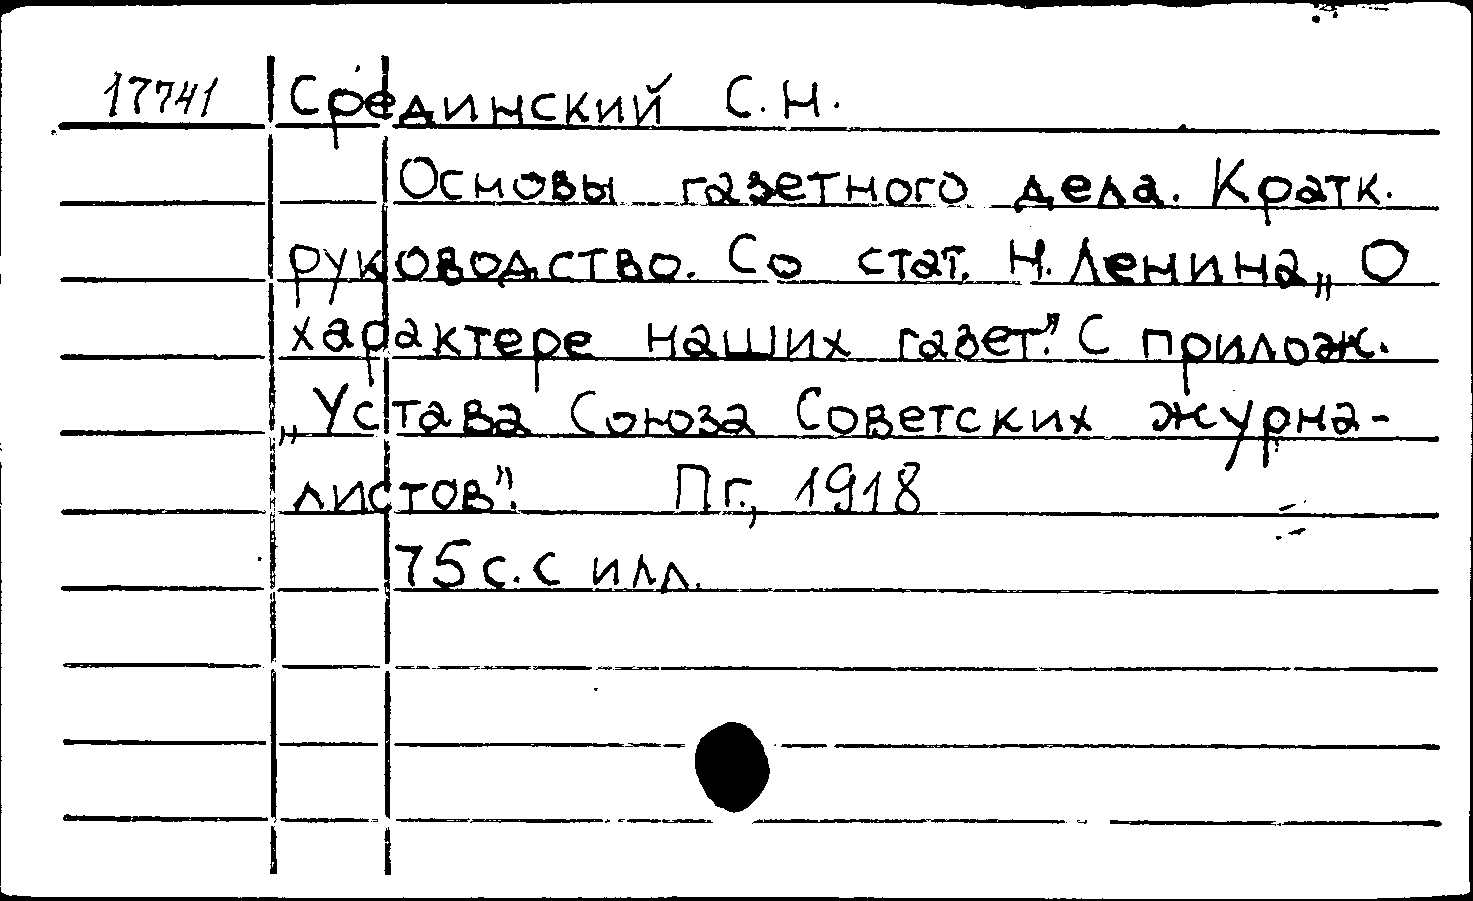 17741 Срединский С.Н.
Основы газетного дела. Кратк.
руководство. Со стат. Н. Ленина „О
характере наших газет". С прилож.
„Устава Союза Советских журна-
листов". Пг., 1918
75 с. с илл.